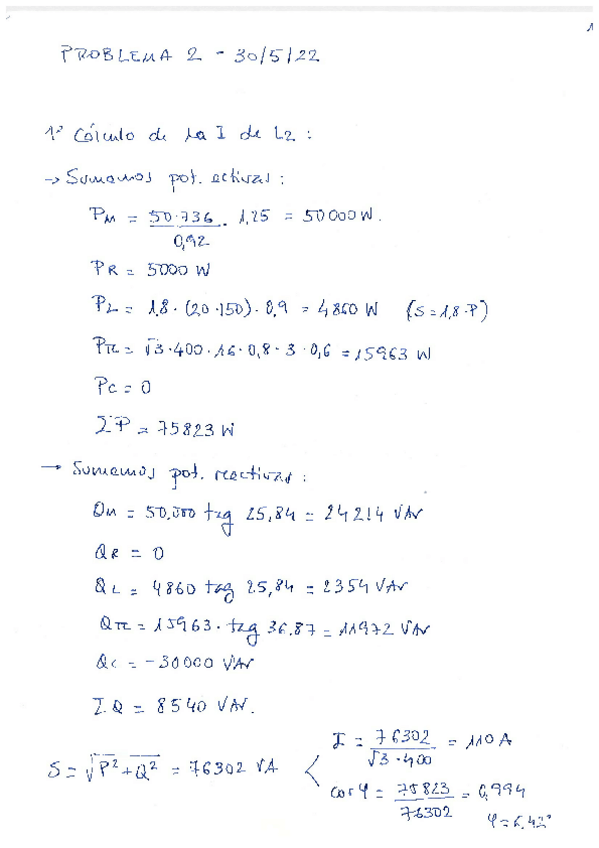 1
PROBLEMA 2 - 30/5/22
1º Cálculo de la I de L2 :
→ Sumamos pot. activas :
PM = 50·736 / 0,92 · 1,25 = 50000 W.
PR = 5000 W
PL = 1,8 · (20·150) · 0,9 = 4860 W (S = 1,8·P)
PTC = √3·400·16·0,8·3·0,6 = 15963 W
PC = 0
ΣP = 75823 W
→ Sumamos pot. reactivas :
QM = 50.000 tag 25,84 = 24214 VAr
QR = 0
QL = 4860 tag 25,84 = 2354 VAr
QTC = 15963 · tag 36,87 = 11972 VAr
QC = -30000 VAr
ΣQ = 8540 VAr.
S = √P² + Q² = 76302 VA < I = 76302 / √3·400 = 110 A
cos φ = 75823 / 76302 = 0,994
φ = 6,42°